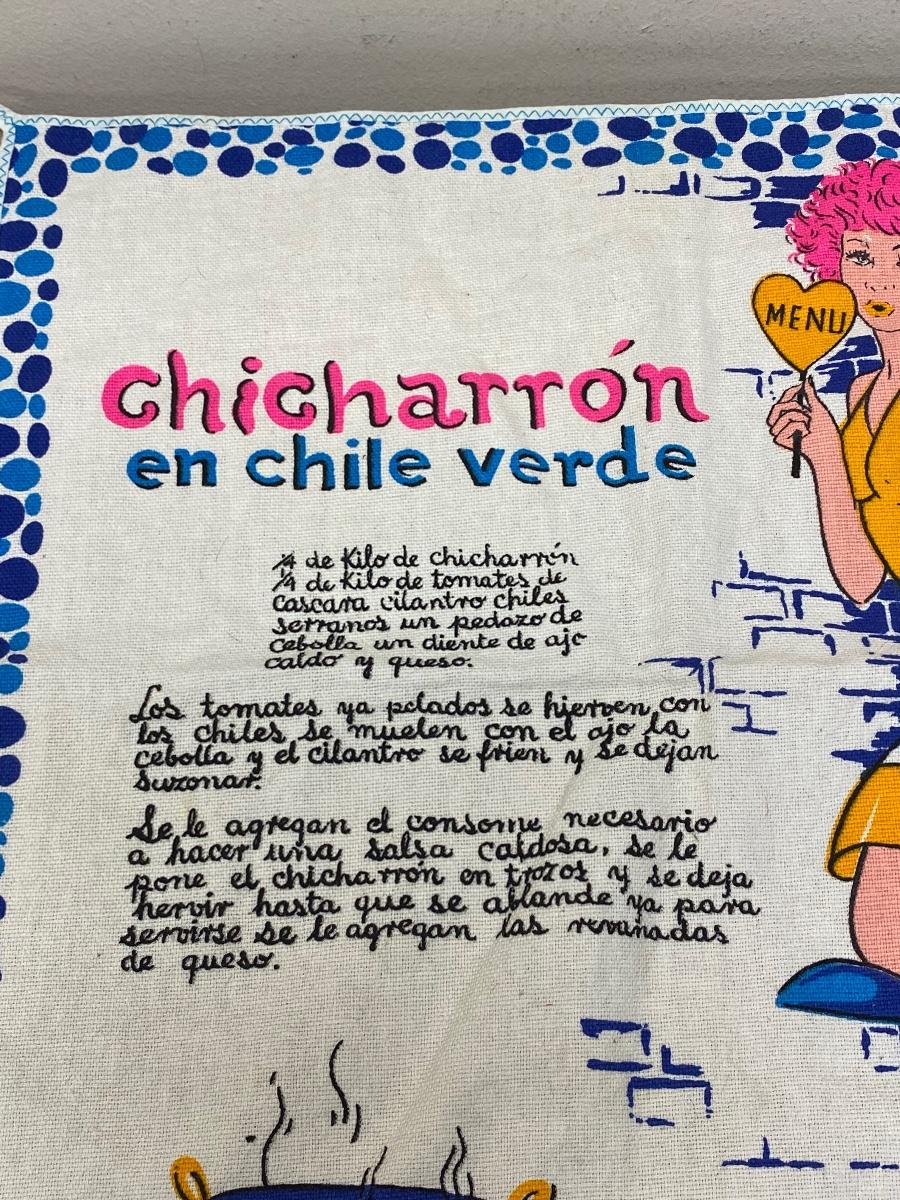 MENU
chicharrón
en chile verde
¼ de Kilo de chicharrón
¼ de Kilo de tomates de
Cascara cilantro chiles
serranos un pedazo de
cebolla un diente de ajo
caldo y queso.
Los tomates ya pelados se hierven con
los chiles se muelen con el ajo la
cebolla y el cilantro se frien y se dejan
suzonar.
Se le agregan el consome necesario
a hacer una salsa caldosa, se le
pone el chicharrón en trozos y se deja
hervir hasta que se ablande ya para
servirse se le agregan las revanadas
de queso.